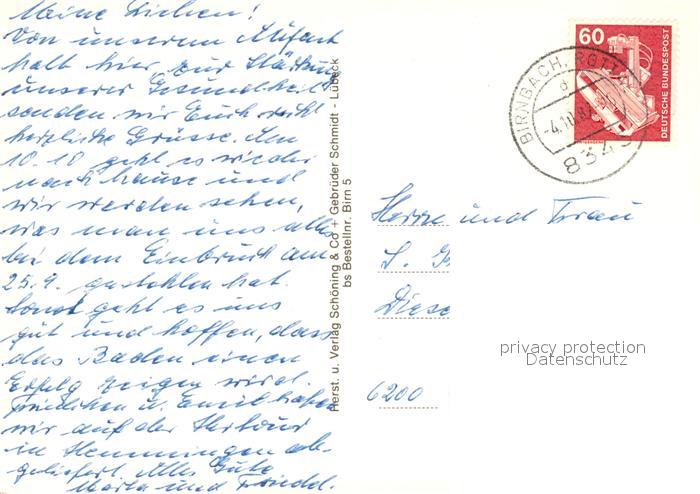 Meine Lieben!
Von unserem Aufent
halt hier, zur Stärkung
unserer Gesundheit
senden wir Euch recht
herzliche Grüsse. Am
10.10 geht es wieder
nach hause und
wir werden sehen,
was man uns alles
bei dem Einbruch am
25.9. gestohlen hat.
Sonst geht es uns
gut und hoffen, dass
das Baden einen
Erfolg zeigen wird.
Friedchen u. Emil haben
wir auf der Herfour
in Hemmingen ab-
geliefert. Alles Gute
und Friedel.
Herst. u. Verlag Schöning & Co + Gebrüder Schmidt - Lübeck
bs Bestellnr. Birn 5
60
DEUTSCHE BUNDESPOST
BIRNBACH, ROTTAL
d
-4.10.8
834
Herrn und Frau
S.
Diese
6200
privacy protection
Datenschutz